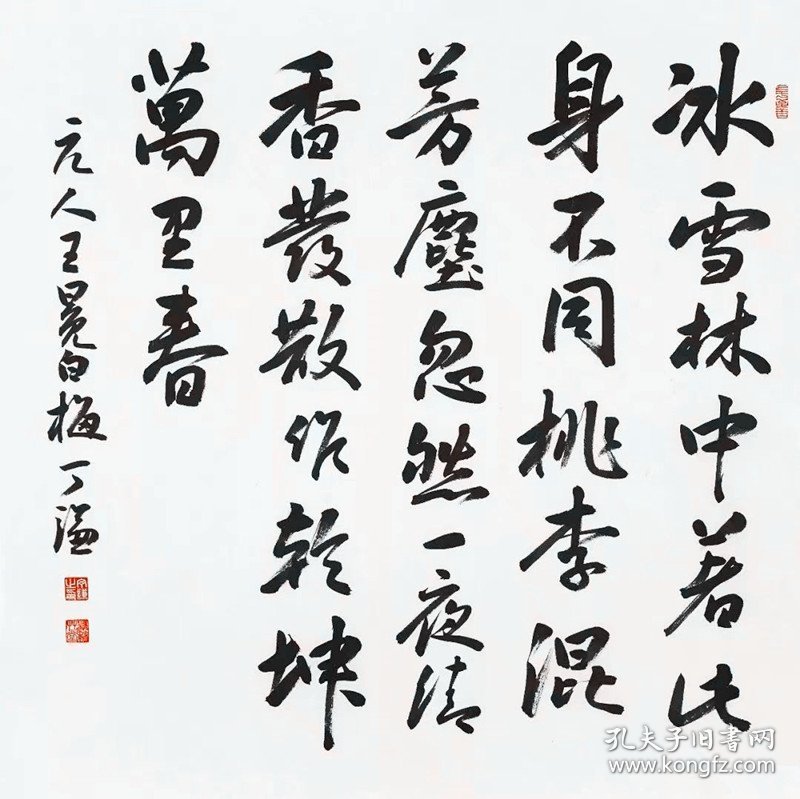 冰雪林中著此
身不同桃李混
芳塵忽然一夜清
香發散作乾坤
萬里春
元人王冕白梅丁
孔夫子旧书网
www.kongfz.com